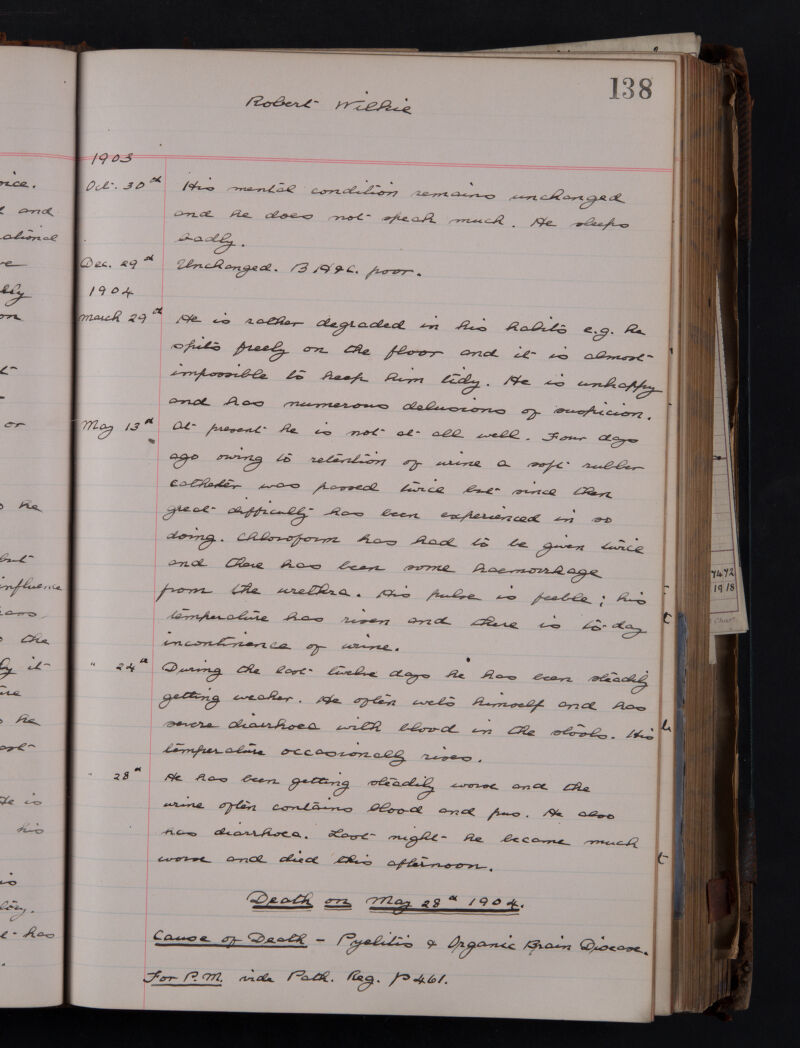 138
Robert Wilkie
1903
Oct. 30th His mental condition remains unchanged
and he does not speak much. He sleeps
badly.
Dec. 29th Unchanged. B H & C. poor.
1904
March 29th He is rather degraded in his habits e.g. he
spits freely on the floor and it is almost
impossible to keep him tidy. He is unhappy
and has numerous delusions of suspicion.
May 13th At present he is not at all well. Four days
ago owing to retention of urine a soft rubber
catheter was passed twice but since then
great difficulty has been experienced in so
doing. Chloroform has had to be given twice
and there has been some haemorrhage
from the urethra. His pulse is feeble; his
temperature has risen and there is to-day
incontinence of urine.
" 24th During the last twelve days he has been steadily
getting weaker. He often wets himself and has
severe diarrhoea with blood in the stools. His
temperature occasionally rises.
" 28th He has been getting steadily worse and the
urine often contains blood and pus. He also
has diarrhoea. Last night he became much
worse and died this afternoon.
Death on May 28th 1904.
Cause of Death - Pyelitis & Organic Brain Disease.
For P.M. vide Path. Reg. p 461.
and
or
he
but
influence
the
he
He is
his
has
7472
1918